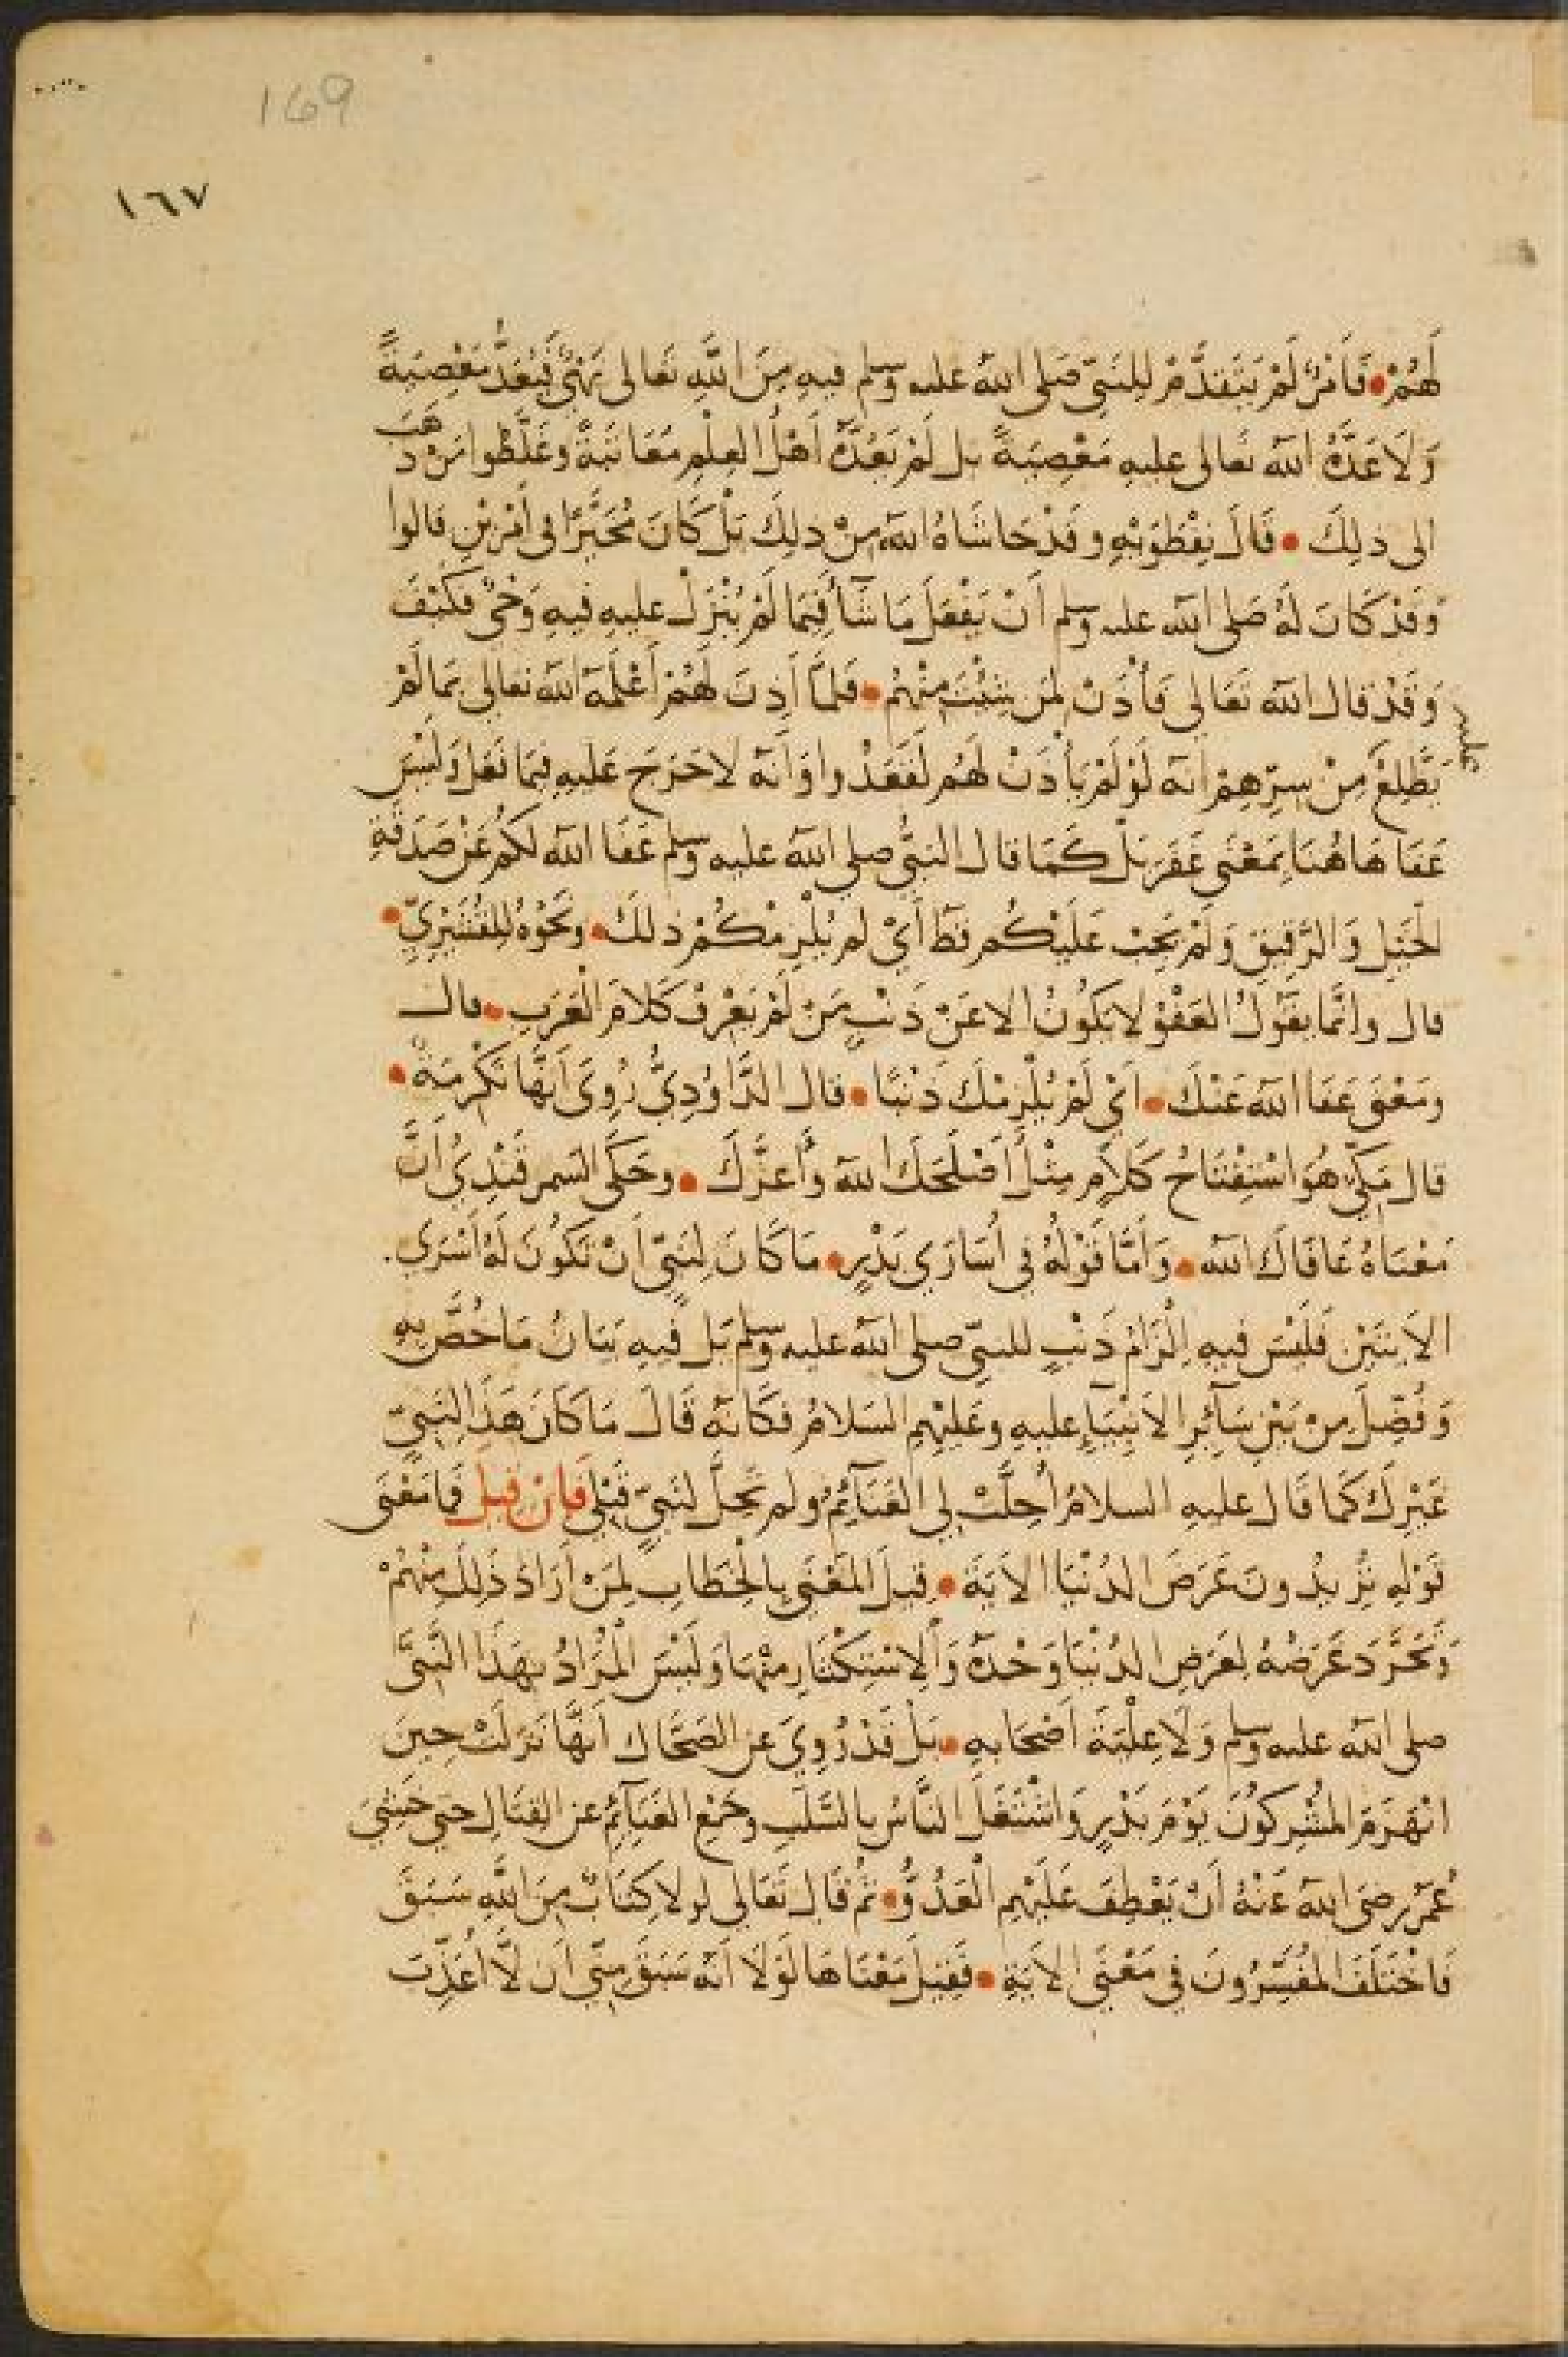 169
١٦٧
لَهُمْ • فَأَمْرٌ لَمْ يَتَقَدَّمْ لِلنَّبِيِّ صَلى اللهُ عليه وسلم فيهِ مِنَ اللَّهِ تَعَالى نَهْيٌ فَيُعَدُّ مَعْصِيَةً
وَلَا عَدَّهُ اللهُ تعَالى عليهِ مَعْصِيَةً بل لَمْ يَعُدَّهُ أَهْلُ العِلْمِ مُعَاتَبَةً وغَلَّطُوا مَنْ ذهَبَ
الى ذلِكَ • قَالَ نِفْطَوَيْهِ وقَدْ حَاشَاهُ اللهُ مِنْ ذلِكَ بَلْ كَانَ مُخَيَّرًا فى أَمْرَيْنِ قالوا
وَقَدْ كَانَ لَهُ صَلى الله عليه وسلم أَنْ يَفْعَلَ مَا شَآءَ فِيمَا لَمْ يُنْزَلْ عليهِ فيهِ وَحْيٌ فكَيْفَ
وَقَدْ قال اللهُ تَعَالى فَأْذَنْ لِمَن شِئْتَ مِنْهُم • فَلَمَّا أَذِنَ لَهُمْ أَعْلَمَهُ اللهُ تعالى بمَا لَمْ
يَطَّلِعْ مِنْ سِرِّهِمْ انه لَوْ لَمْ يَأْذَنْ لَهُم لَقَعَدُوا وَأَنَّهُ لا حَرَجَ عَليهِ فيمَا فَعَل وَلَيْسَ
عليه
عَفَا هَاهُنَا بِمَعْنَى غَفَرَ بَلْ كَمَا قال النبيُّ صلى اللهُ عليه وسلم عَفَا اللهُ لكُم عَنْ صَدَقَةِ
الخَيْلِ وَالرَّقِيقِ وَلَمْ تَجِبْ عَلَيْكُم قَطُّ أَيْ لم يُلْزِمْكُمْ ذلكَ • ونَحْوُهُ لِلقُشَيْرِيِّ •
قال وإنَّما يَقُولُ العَفْوُ لا يَكُونُ إلا عَنْ ذَنْبٍ مَنْ لَمْ يَعْرِفْ كَلامَ العَرَبِ • قال
ومَعْنَى عَفَا اللهُ عَنْكَ • أيْ لَمْ يُلْزِمْكَ ذَنْبًا • قال الدَّاوُدِيُّ رُوِيَ أَنَّهَا تَكْرِمَةٌ •
قال مَكِّيٌّ هُوَ اسْتِفْتَاحُ كَلَامٍ مِثْلُ أَصْلَحَكَ اللهُ وأَعزَّكَ • وحَكَى السَمرقَنْدِيُّ أَنَّ
مَعْنَاهُ عَافَاكَ اللهُ • وَأَمَّا قَوْلُهُ فى أُسَارَى بَدْرٍ • مَا كَانَ لِنَبِيٍّ أَنْ تَكُونَ لَهُ أَسْرَى .
الآيَتَيْنِ فَلَيْسَ فيهِ إلْزَامُ ذَنْبٍ للنبيِّ صلى اللهُ عليه وسلم بَل فِيهِ بَيَانُ مَا خُصَّ بِهِ
وَفُضِّلَ مِنْ بَيْنِ سَآئِرِ الأنبِيَآءِ عليهِ وعَلَيْهِم السَلامُ فكَأنَّهُ قَالَ مَا كَانَ هَذَا لِنَبِيٍّ
غَيْرِكَ كَمَا قَال عليهِ السلامُ أُحِلَّتْ لي الغَنَآئِمُ ولم تَحِلَّ لِنَبِيٍّ قَبْلِي فَإن قيل فَمَا مَعْنَى
قَوْلِهِ تُرِيدُونَ عَرَضَ الدُنْيَا الآيَةَ • قِيلَ المَعْنَى بِالْخِطَابِ لِمَنْ أَرَادَ ذَلِكَ مِنْهُمْ
وتَجَرَّدَ غَرَضُهُ لِعَرَضِ الدُنْيَا وَحْدَهُ وَالاسْتِكْثَارِ مِنْهَا وَلَيْسَ الْمُرَادُ بِهَذَا النَّبِيَّ
صلى اللهُ عليه وسلم وَلَا عِلْيَةَ أَصْحَابِهِ • بَلْ قَدْ رُوِيَ عن الضَحَّاكِ أَنَّهَا نَزَلَتْ حِينَ
انْهَزَمَ المُشْرِكُونَ يَوْمَ بَدْرٍ وَاشْتَغَلَ النَّاسُ بِالسَّلَبِ وجَمْعِ الغَنَآئِمِ عن القِتَالِ حتى خَشِيَ
عُمَرُ رضىَ اللهُ عَنْهُ أَنْ يَعْطِفَ عَلَيْهِم الْعَدُوُّ • ثُمَّ قَال تَعَالى لولا كِتَابٌ مِنَ اللَّهِ سَبَقَ
فَاخْتَلَفَ المُفَسِّرُونَ فِي مَعْنَى الآيَةِ • فَقِيلَ مَعْنَاهَا لَوْلَا أَنَّهُ سَبَقَ مِنِّي أَن لَّا أُعَذِّبَ